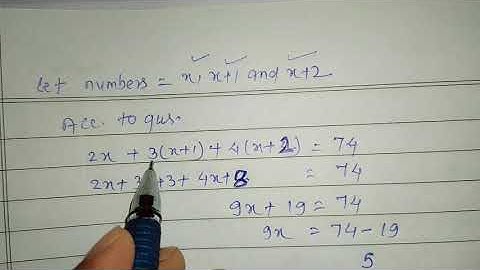 Let numbers = x, x+1 and x+2
Acc. to qus.
2x + 3(x+1) + 4(x+2) = 74
2x + 3 +3 + 4x + 8 = 74
9x + 19 = 74
9x = 74 - 19
5